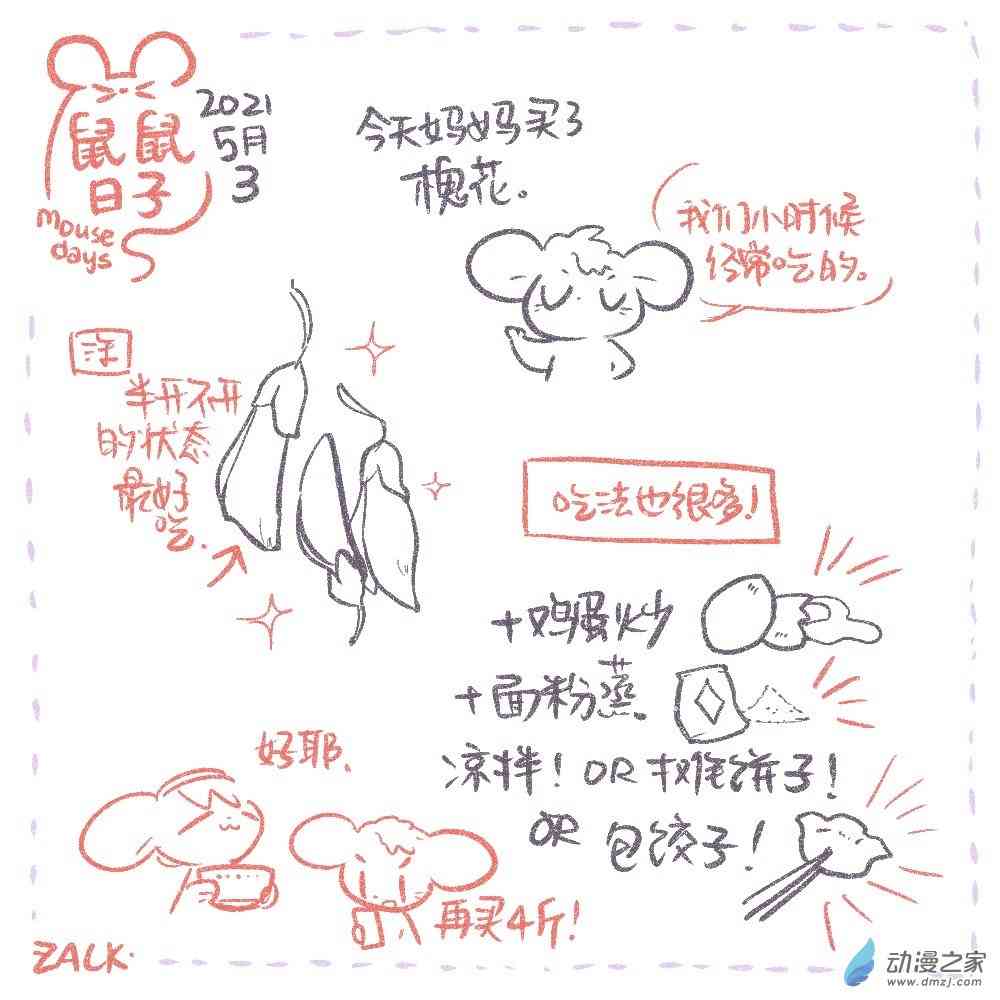 鼠鼠
日子
mouse
days
2021
5月
3
今天妈妈买了
槐花。
我们小时候
经常吃的。
注
半开不开
的状态
最好
吃.
吃法也很多!
+鸡蛋炒
+面粉蒸.
凉拌! OR 摊饼子!
OR 包饺子!
好耶.
再买4斤!
ZALK.
动漫之家
www.dmzj.com